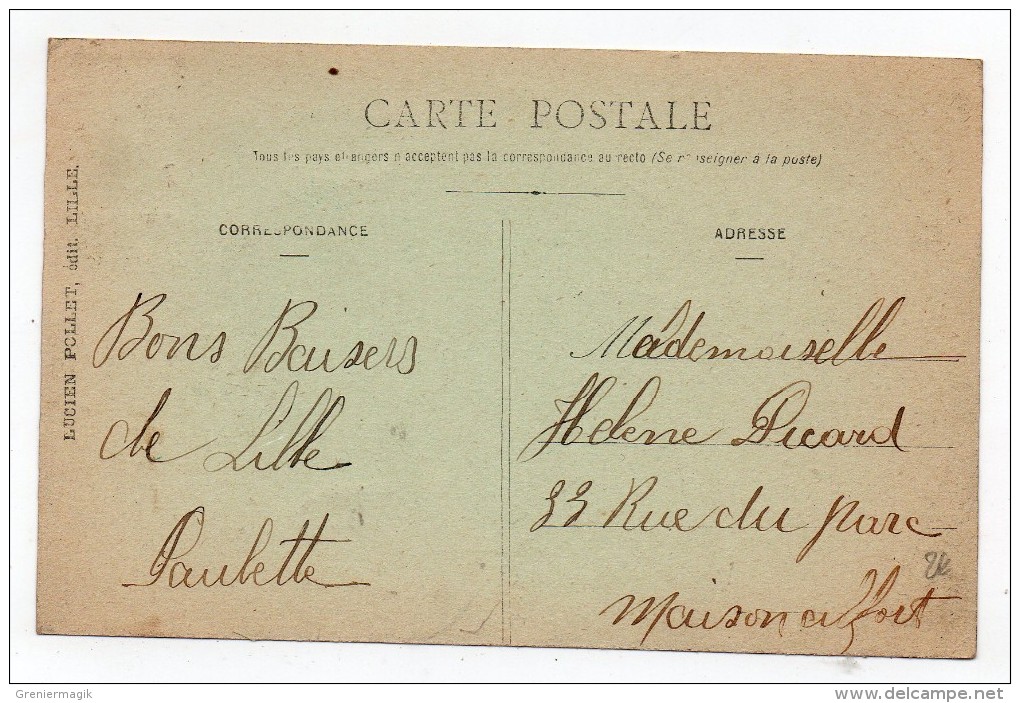 CARTE POSTALE
Tous les pays étrangers n'acceptent pas la correspondance au recto (Se renseigner à la poste)
LUCIEN POLLET, édit. LILLE.
CORRESPONDANCE
Bons Baisers
de Lille
Paulette
ADRESSE
Mademoiselle
Helene Picard
33 Rue du parc
Maison alfort
Greniermagik
www.delcampe.net